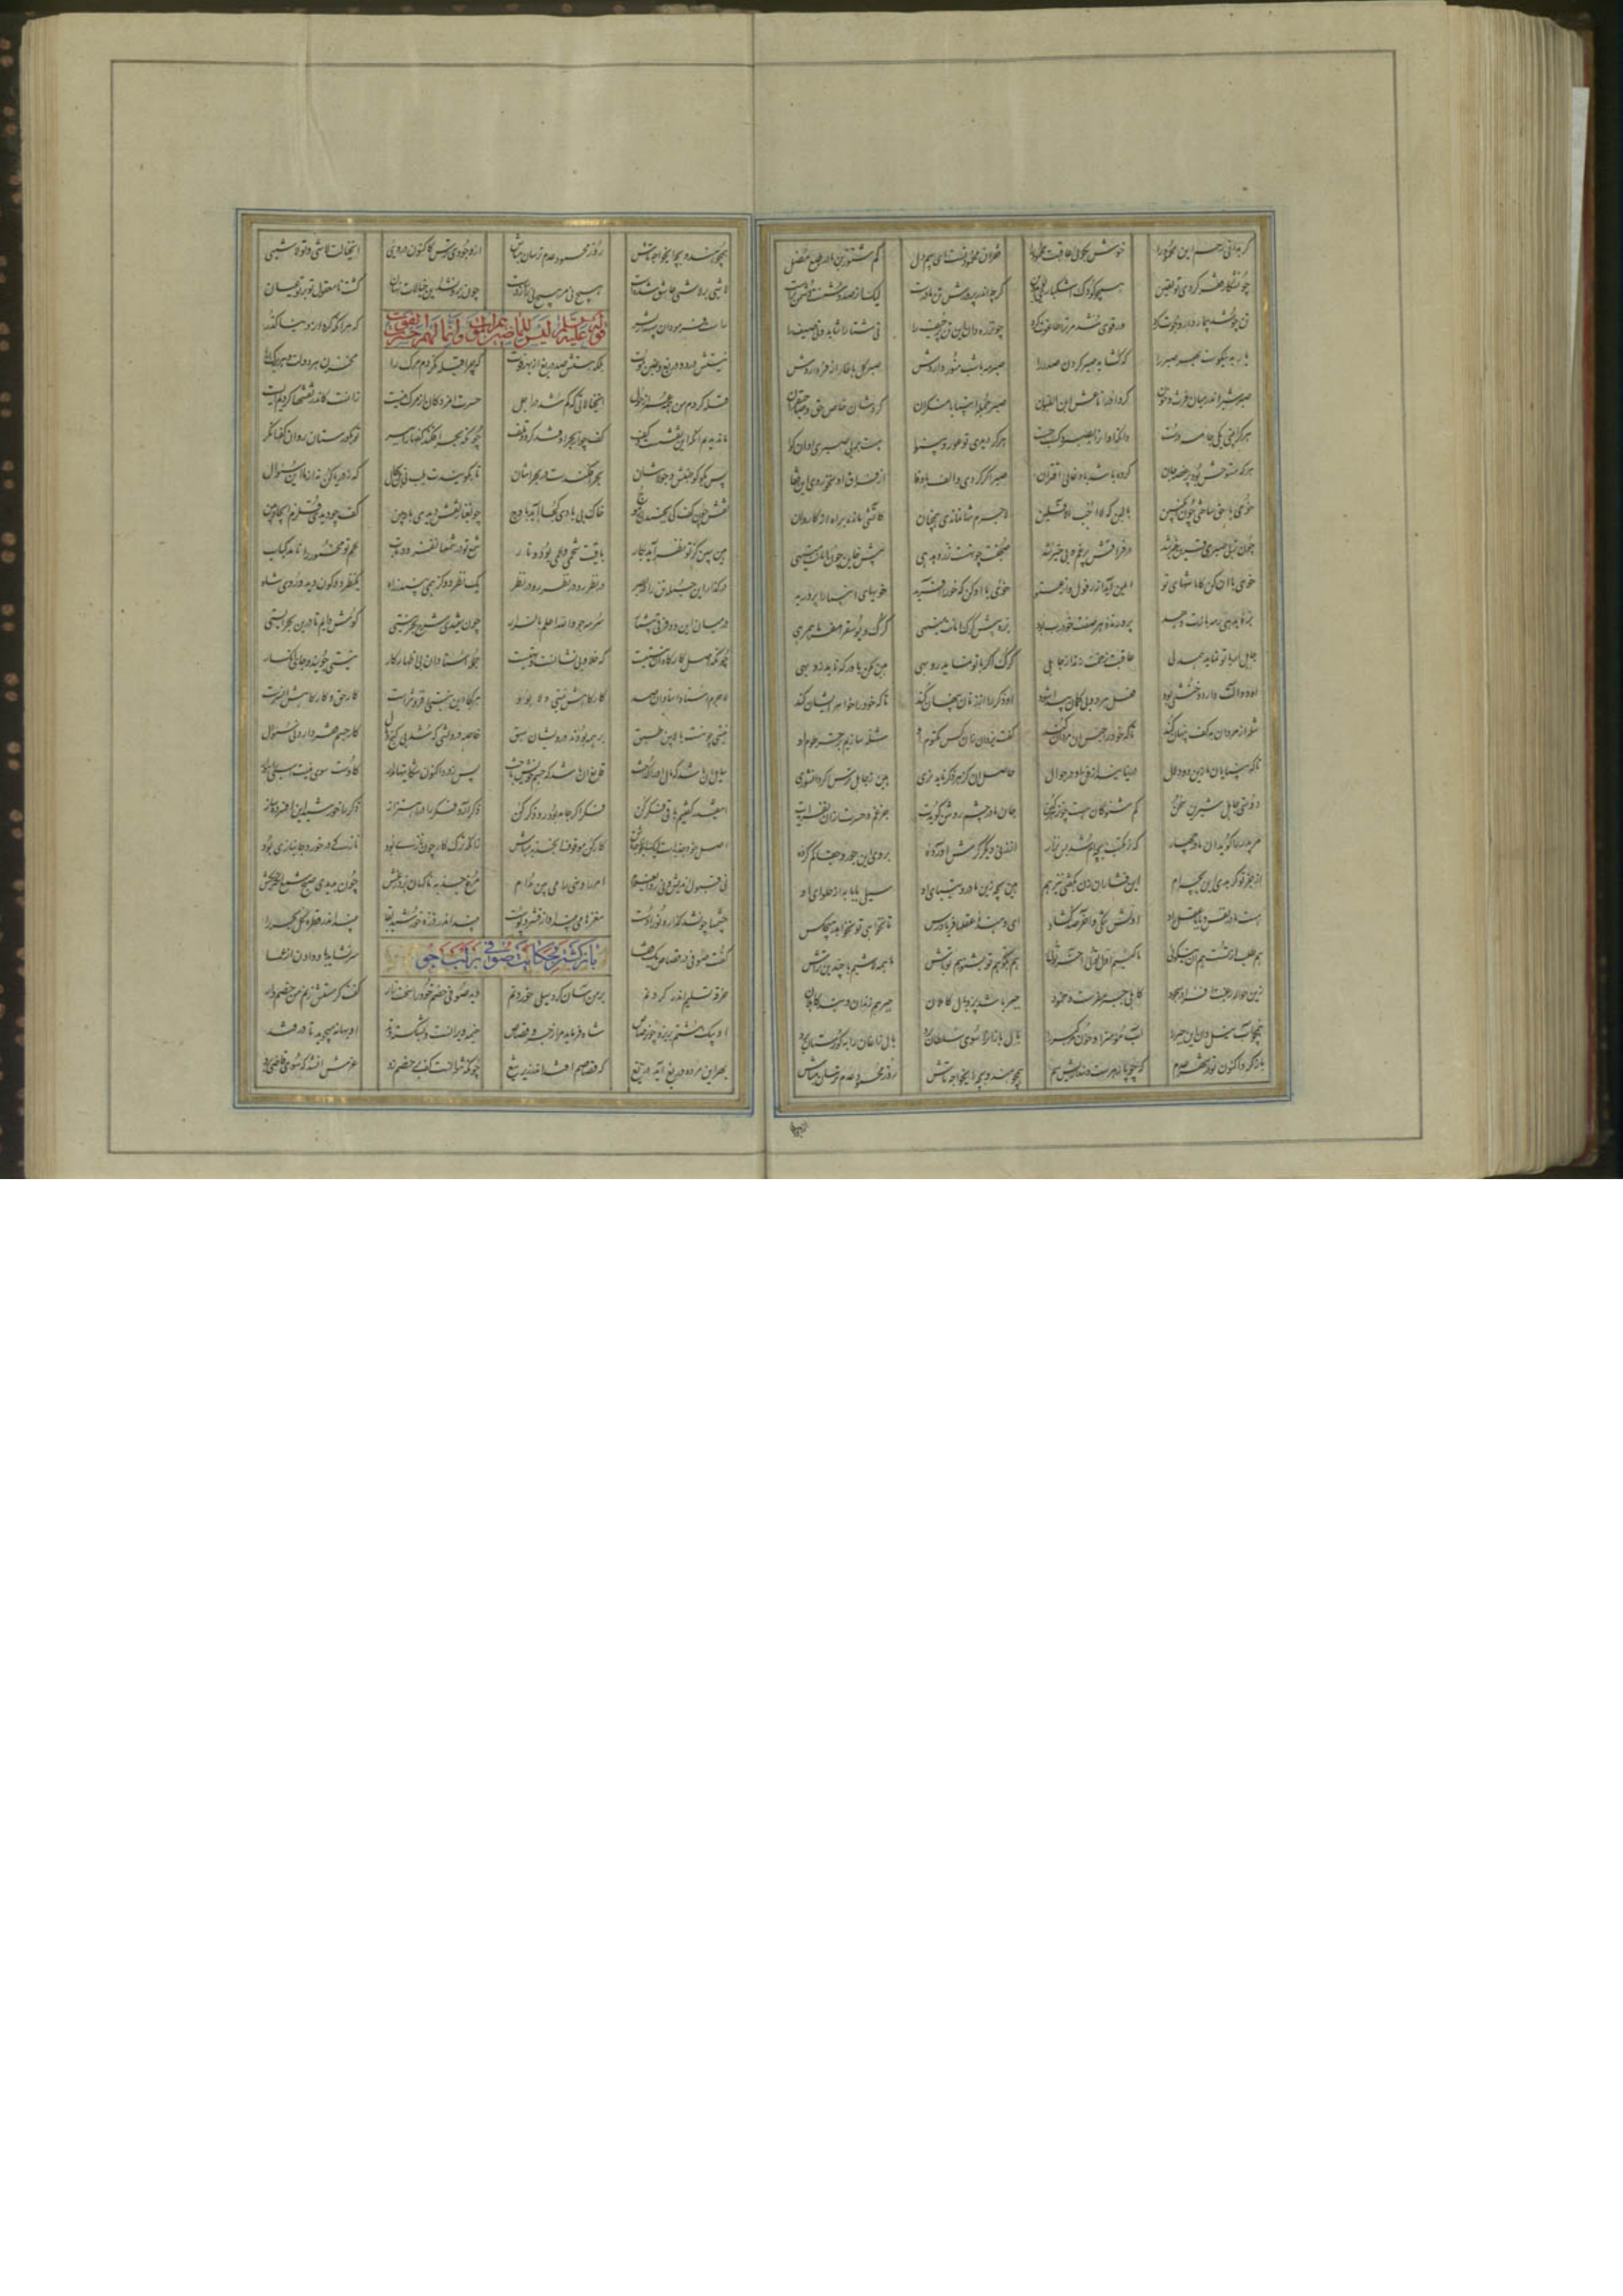 گر بدانی رحم این محمود را خوش بگویی عاقبت محمود فقر آن محمود تست ای بیم دل کم شنو زین مادر طبع مضل
چون شکار فقر کردی تو یقین همچو کودک اشک باری یوم دین گرچه اندر پرورش تن مادرست لیک از صد دشمنت دشمن ترست
تن چو شد بیمار دارو جوت کرد ور قوی شد مر ترا طاغوت کرد چون زره دان این تن پر حیف را نی شتا را شاید و نی صیف را
یار بد نیکوست بهر صبر را که گشاید صبر کردن صدر را صبر مه با شب منور داردش صبر گل با خار اذفر داردش
صبر شیر اندر میان فرث و خون کرده او را ناعش ابن اللبون صبر جمله انبیا با منکران کردشان خاص حق و صاحب قران
هر کرا بینی یکی جامه درست دانکه او آن را بصبر و کسب جست هر کرا دیدی تو عور و بینوا هست بر بی صبری او آن گوا
هر که مستوحش بود پر غصه جان کرده باشد با دغایی اقتران صبر اگر کردی و الف با وفا از فراق او نخوردی این قفا
خوی با حق ساختی چون انگبین با لبن که لا احب الافلین لاجرم تنها نماندی همچنان کاتشی مانده براه از کاروان
چون ز بی صبری قرین غیر شد در فراقش پر غم و بی خیر شد صحبتت چون هست زر ده دهی پیش خاین چون امانت می نهی
خوی با او کن کامانتهای تو ایمن آید از افول و از عتو خوی با او کن که خو را آفرید خویهای انبیا را پرورید
بره بدهی رمه بازت دهد پرورنده هر صفت خود رب بود بره پیش گرگ امانت می نهی گرگ و یوسف را مفرما همرهی
جاهل ار با تو نماید همدلی عاقبت زخمت زند از جاهلی گرگ اگر با تو نماید روبهی هین مکن باور که ناید زو بهی
او دو آلت دارد و خنثی بود فعل هر دو بی گمان پیدا شود او ذکر را از زنان پنهان کند تا که خود را خواهر ایشان کند
شله از مردان بکف پنهان کند تا که خود را جنس آن مردان کند گفت یزدان زان کس مکتوم او شله سازیم بر خرطوم او
تا که بینایان ما زین ذو دلال در نیایند از فن او در جوال حاصل آن کز هر ذکر ناید نری هین ز جاهل ترس اگر دانشوری
دوستی جاهل شیرین سخن کم شنو کان هست چون سم کهن جان مادر چشم روشن گویدت جز غم و حسرت ازان نفزایدت
مر پدر را گوید آن مادر جهار که ز مکتب بچه ام شد بس نزار از زن دیگر گرش آوردیی بر وی این جور و جفا کم کردیی
از جز تو گر بدی این بچه ام این فشار آن زن بگفتی نیز هم هین بجه زین مادر و تیبای او سیلی بابا به از حلوای او
هست مادر نفس و بابا عقل راد اولش تنگی و آخر صد گشاد ای دهنده عقلها فریاد رس تا نخواهی تو نخواهد هیچکس
هم طلب از تست هم آن نیکوی ما کییم اول توی آخر توی هم بگو تو هم تو بشنو هم تو باش ما همه لاشیم با چندین تراش
زین حواله رغبت افزا در سجود کاهلی جبر مفرست و خمود جبر باشد پر و بال کاملان جبر هم زندان و بند کاهلان
همچو آب نیل دان این جبر را آب مؤمن را و خون مر گبر را بال بازان را سوی سلطان برد بال زاغان را به گورستان برد
باز گرد اکنون تو در شرح عدم که چو پازهرست و پنداریش سم همچو هندو بچه ای خواجه تاش رو ز محمود عدم ترسان مباش
همچو هندو بچه ای خواجه تاش رو ز محمود عدم ترسان مباش از وجودی ترس کاکنون در ویی آن خیالت لاشی و تو لاشیی
لاشیی بر لاشیی عاشق شدست هیچ نی مر هیچ نی را ره زدست چون برون شد این خیالات از میان گشت نامعقول تو بر تو عیان
قوله علیه السلم لیس للماضین هم الموت و انما لهم حسرة الفوت
راست فرمود آن سپهدار بشر که هر آنکه کرد از دنیا گذر
نیستش درد و دریغ و غبن موت بلکه هستش صد دریغ از بهر فوت که چرا قبله نکردم مرگ را مخزن هر دولت و هر برگ را
قبله کردم من همه عمر از حول آن خیالاتی که گم شد در اجل حسرت آن مردگان از مرگ نیست زانست کاندر نقشها کردیم ایست
ما ندیدیم آنکه این نقش است و کف چونکه بحر افکند کفها را ببر تو بگورستان رو آن کفها نگر
پس بگو کو جنبش و جولانتان بحر افکندست در بحرانتان تا بگویندت بلب نی بل بحال که ز دریا کن نه از ما این سؤال
نقش چون کف کی بجنبد بی ز موج خاک بی بادی کجا آید بر اوج چون غبار نقش دیدی باد بین کف چو دیدی قلزم ایجاد بین
هین ببین کز تو نظر آید بکار باقیت شحمی و لحمی پود و تار شحم تو در شمعها نفزود تاب لحم تو مخمور را نامد کباب
در گداز این جمله تن را در بصر در نظر رو در نظر رو در نظر یک نظر دو گز همی بیند ز راه یک نظر دو کون دید و روی شاه
در میان این دو فرقی بی شمار سرمه جو والله اعلم بالسرار چون شنیدی شرح بحر نیستی کوش دایم تا برین بحر ایستی
چونکه اصل کارگاه آن نیستیست که خلا و بی نشانست و تهیست جمله استادان پی اظهار کار نیستی جویند و جای انکسار
لاجرم استاد استادان صمد کارگاهش نیستی و لا بود هر کجا این نیستی افزونترست کار حق و کارگاهش آن سرست
نیستی چون هست بالایین طبق بر همه بردند درویشان سبق خاصه درویشی که شد بی کار فقر جسم دارد نی سؤال
سایل آن باشد که مال او گداخت قانع آن باشد که جسم خویش باخت پس ز درد اکنون شکایت بر مدار کوست سوی نیست اسپی راهوار
این قدر گفتیم باقی فکر کن فکر اگر جامد بود رو ذکر کن ذکر آرد فکر را در اهتزاز ذکر را خورشید این افسرده ساز
اصل خود جذبه است لیک ای خواجه تاش کار کن موقوف آن جذبه مباش زانکه ترک کار چون نازی بود ناز کی در خورد جانبازی بود
نی قبول اندیش و نی رد ای غلام امر را و نهی را می بین مدام مرغ جذبه ناگهان پرد ز عش چون بدیدی صبح شمع آنگه بکش
چشمها چون شد گذاره نور اوست مغزها می بیند او در پوست بیند اندر ذره خورشید بقا بیند اندر قطره کل بحر را
باز گشتن بحکایت صوفی بر لب جو
گفت صوفی در قصاص یک قفا سر نشاید باد دادن از عما
خرقه تسلیم اندر گردنم بر من آسان کرد سیلی خوردنم دید صوفی خصم خود را سخت زار گفت اگر مشتش زنم من خصم وار
او بیک مشتم بریزد چون رصاص شاه فرماید مرا زجر و قصاص خیمه ویرانست و بشکسته وتد او بهانه میجوید تا در فتد
بهر این مرده دریغ آید دریغ که قصاصم افتد اندر زیر تیغ چونکه نتوانست کف بر خصم زد عزمش آن شد کش سوی قاضی برد